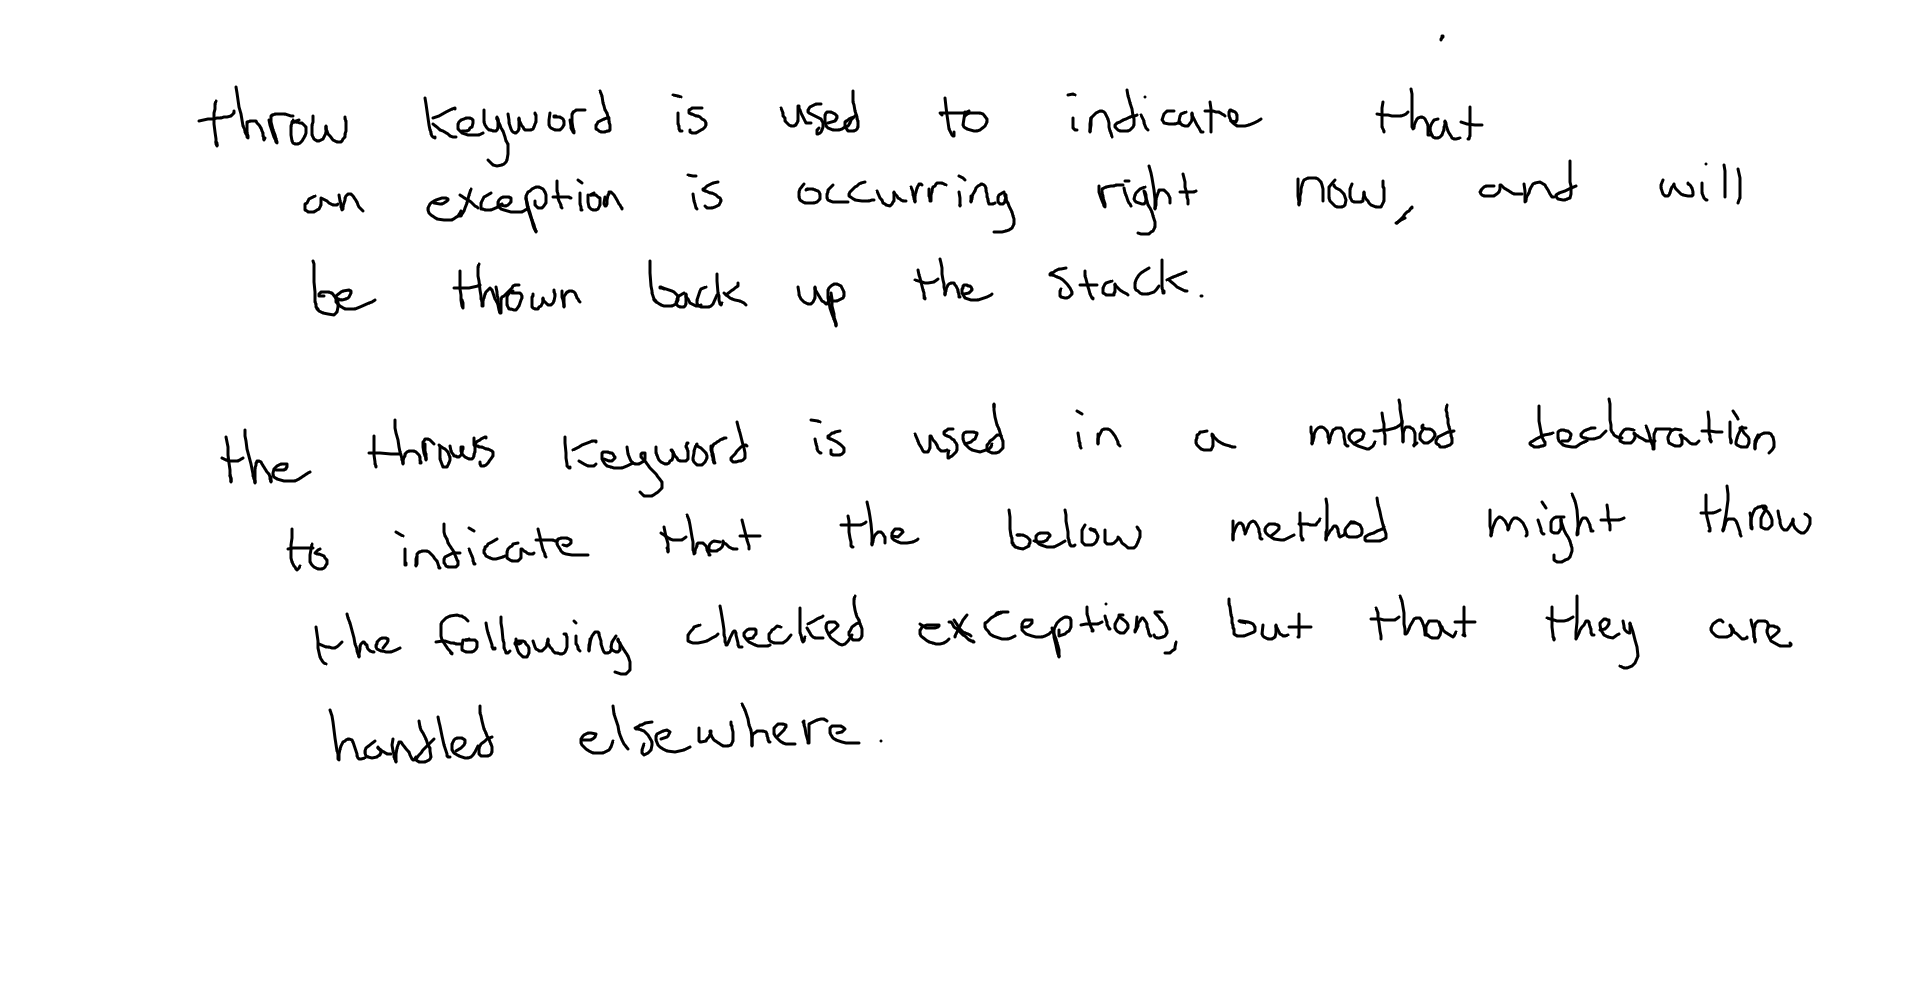 throw keyword is used to indicate that
an exception is occurring right now, and will
be thrown back up the stack.
the throws keyword is used in a method declaration
to indicate that the below method might throw
the following checked exceptions, but that they are
handled elsewhere.